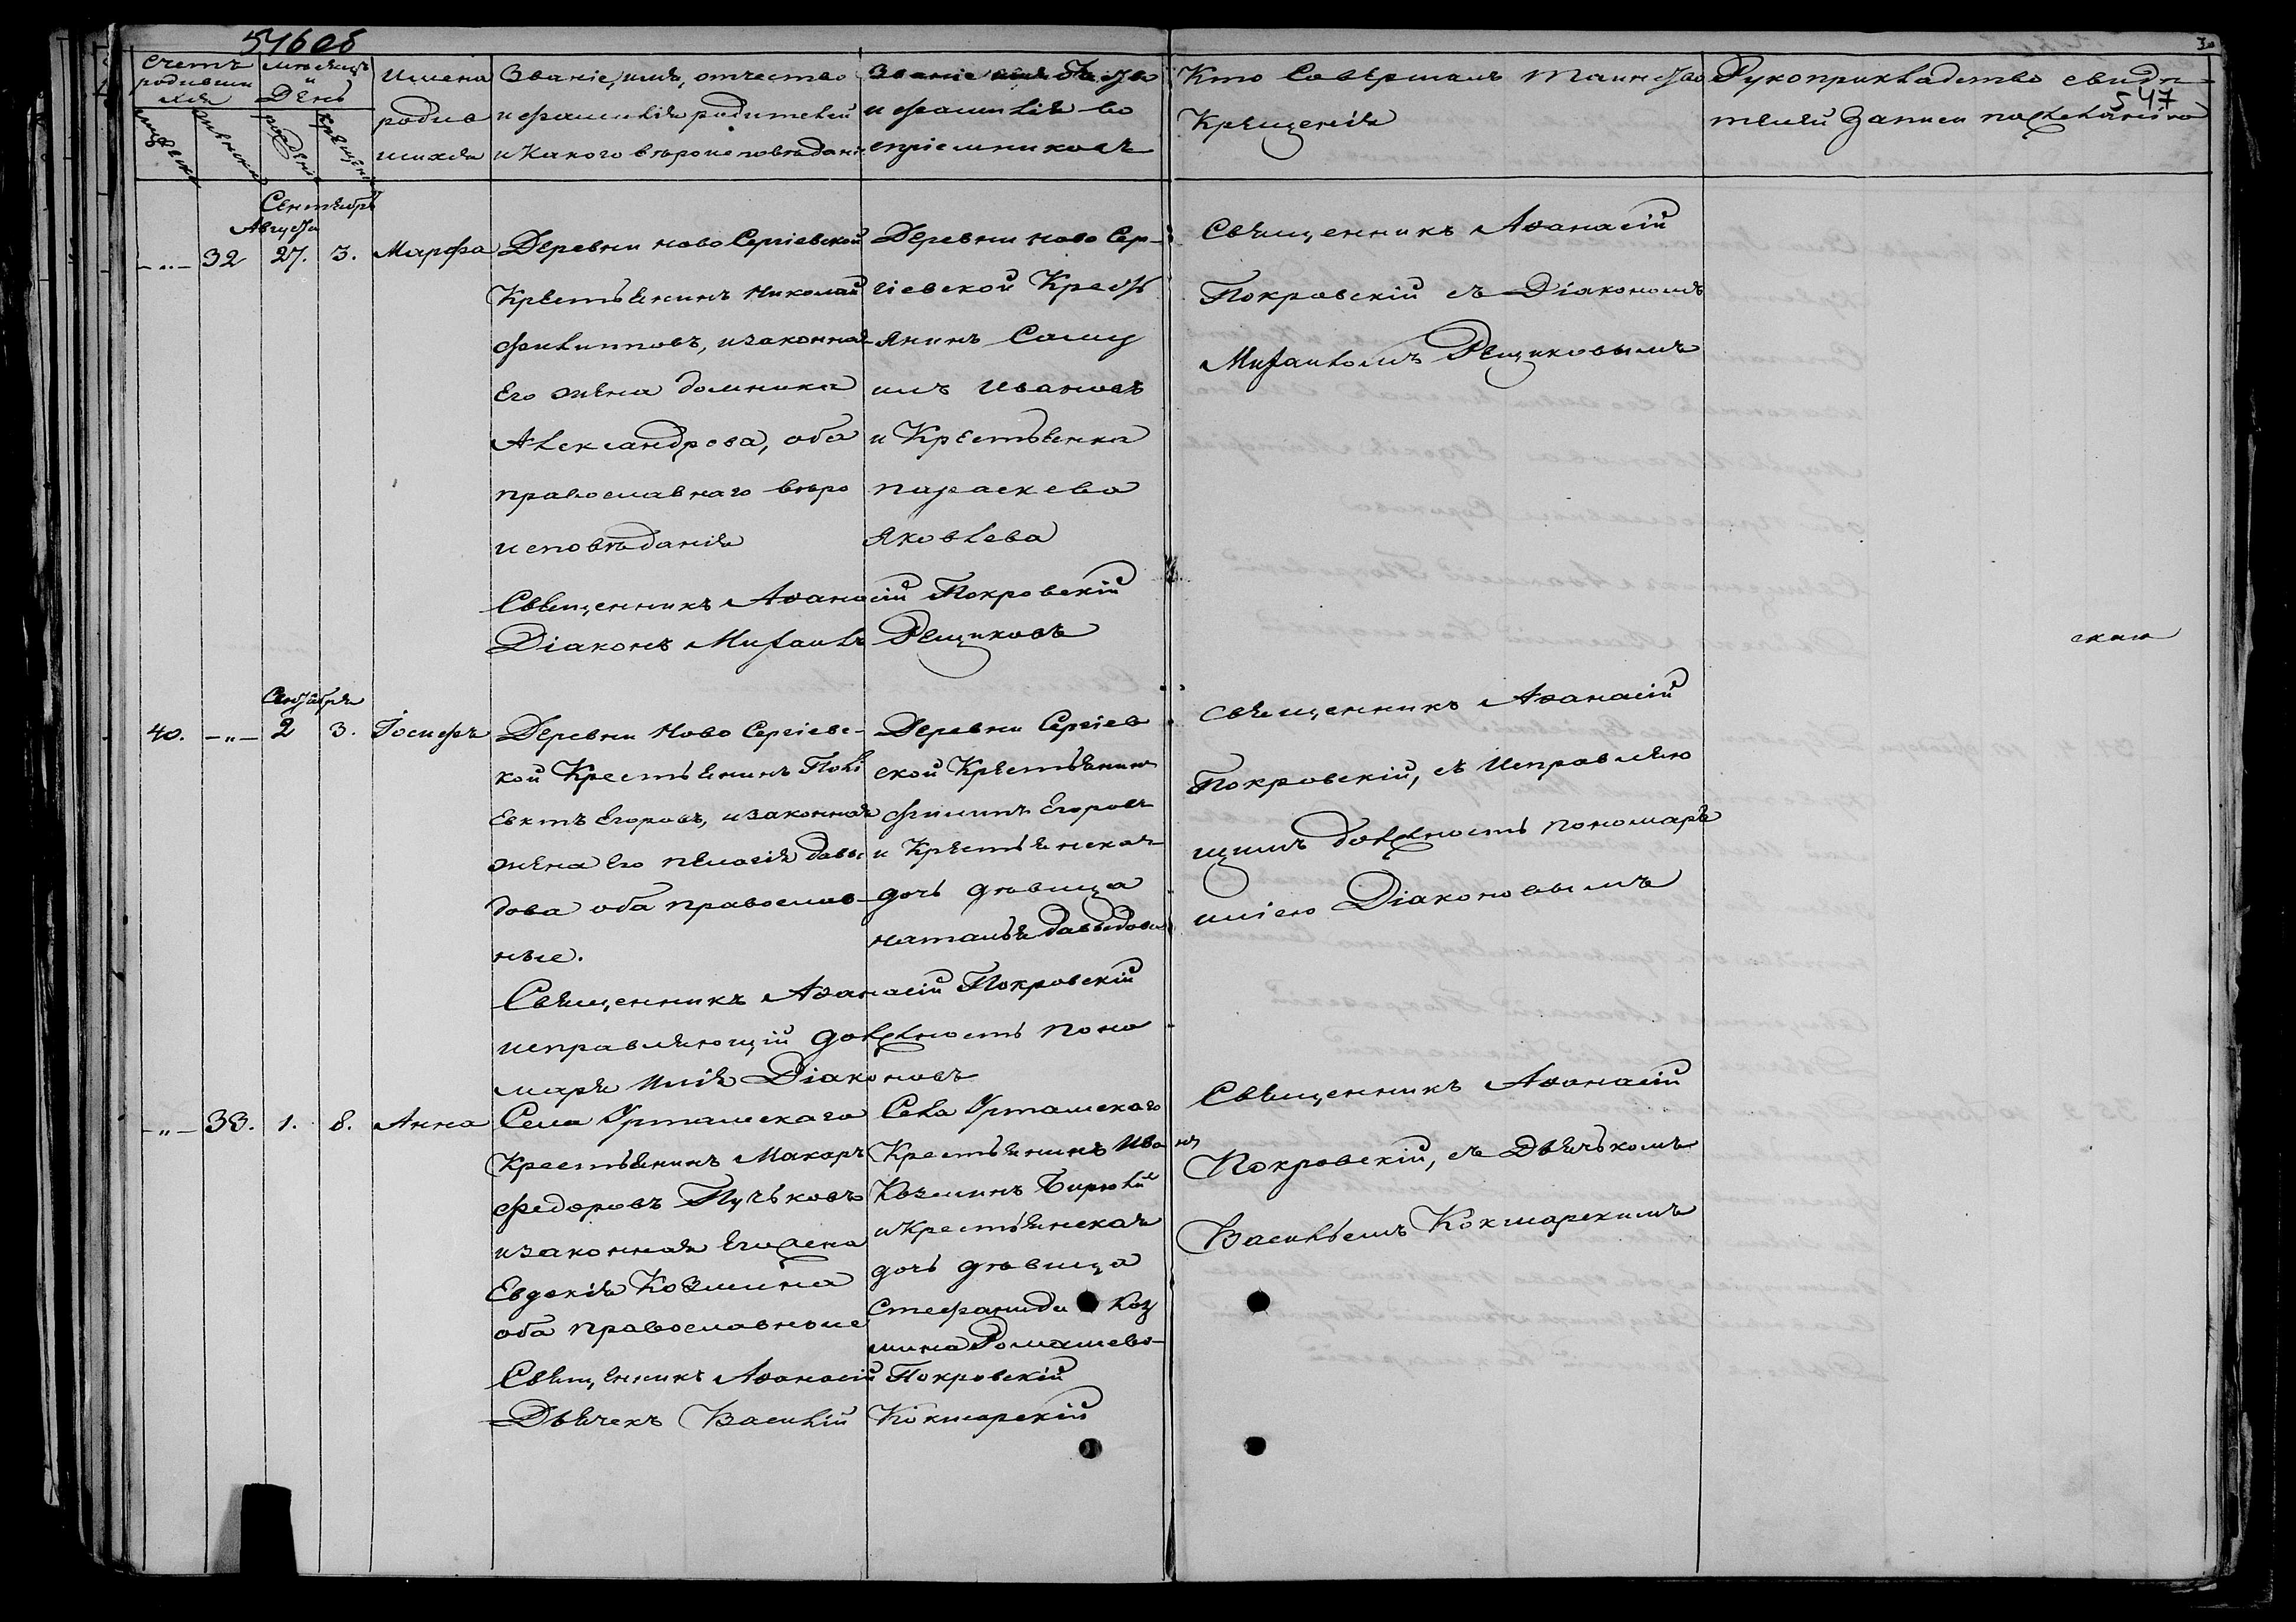 546 об
3
547
Счетъ родившихся
мужеска
женска
Мѣсяцъ и День
рожденія
крещенія
Имена родившихся
Званіе, имя, отчество
и фамилія родителей
и какого вѣроисповѣданія
Званіе имя отчество
и фамилія во
спріемниковъ
Кто совершалъ таинство
Крещенія
Рукоприкладство свидѣ-
телей записи по желанію
Сентябрь
Августа
-"- 32 27. 3. Марфа
Деревни Ново Сергіевской
Крестьянинъ Николай
Филипповъ, и законная
его жена Домника
Александрова, оба
православнаго вѣро
исповѣданія
Деревни Ново Сер-
гіевской Кресть
янинъ Само
илъ Ивановъ
и Крестьянка
Параскева
Яковлева
Священникъ Аѳанасій
Покровскій съ Діакономъ
Михаиломъ Рещиковымъ
Священникъ Аѳанасій Покровскій
Діаконъ Михаилъ Рещиковъ
Сентября
40. -"- 2 3. Іосифъ
Деревни Ново Сергіевс-
кой Крестьянинъ Полі
евктъ Егоровъ, и законная
жена его Пелагія Давы
дова оба православ-
ные.
Деревни Сергіев
ской Крестьянинъ
Филипъ Егоровъ
и Крестьянская
дочь дѣвица
Наталья Давыдова
Священникъ Аѳанасій
Покровскій, съ исправляю
щимъ должность пономаря
Иліею Діаконовымъ
Священникъ Аѳанасій Покровскій
исправляющій должность поно
маря Илія Діаконовъ
-"- 33. 1. 8. Анна
Села Урташскаго
Крестьянинъ Макаръ
Федоровъ Пучковъ
и законная его жена
Евдокія Козмина
оба православные
Села Урташскаго
Крестьянинъ Иванъ
Козминъ
и Крестьянская
дочь дѣвица
Стефанида Коз
мина Ромашева
Священникъ Аѳанасій
Покровскій, съ Дьячькомъ
Васильемъ Кокшарскимъ
Священникъ Аѳанасій Покровскій
Дьячекъ Василій Кокшарскій